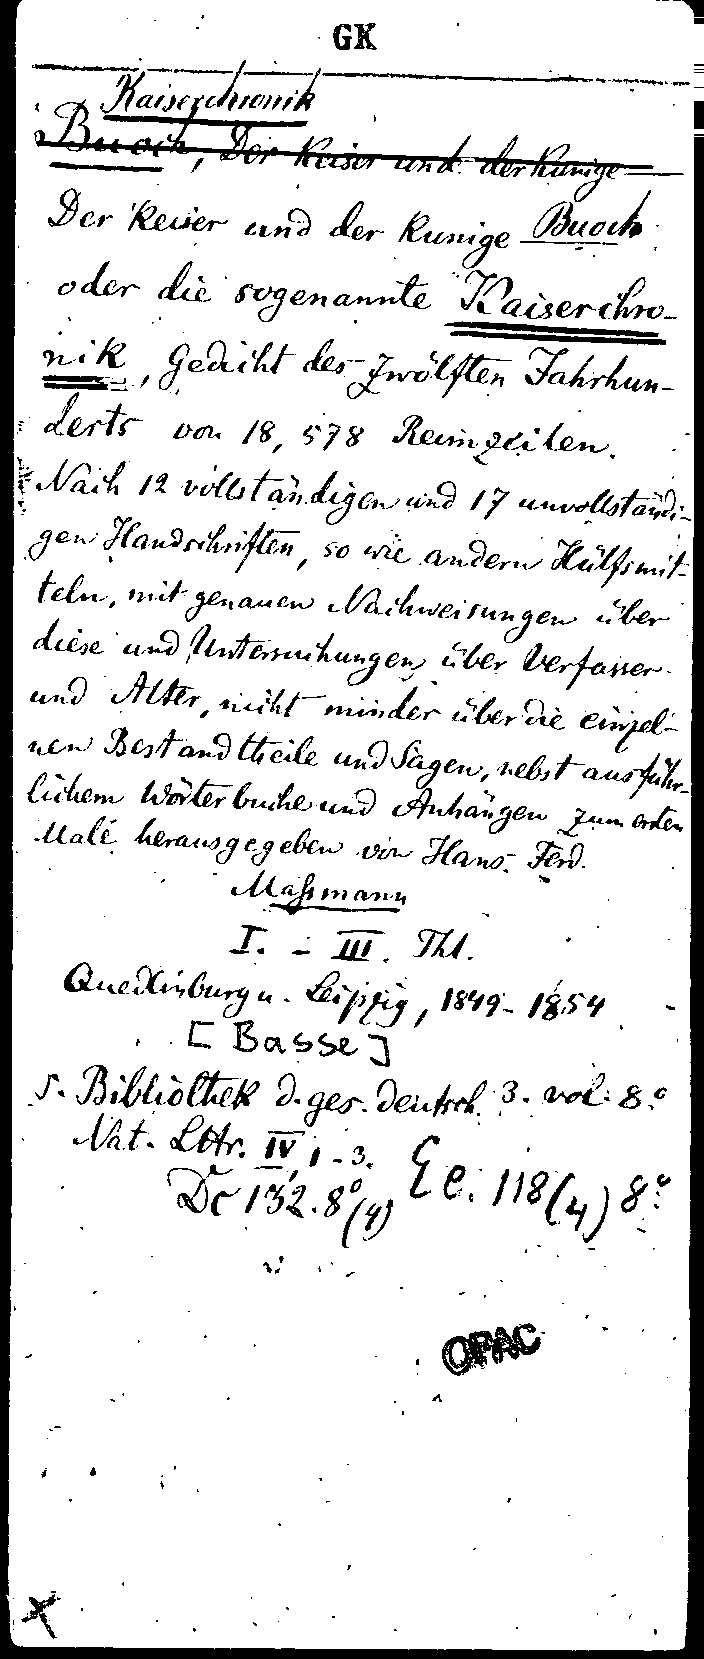 GK
Kaiserchronik
Buoch, Der keiser und der kunige
Der keiser und der kunige Buoch
oder die sogenannte Kaiserchro-
nik, Gedicht des zwölften Jahrhun-
derts von 18,578 Reimzeilen.
Nach 12 vollständigen und 17 unvollständi-
gen Handschriften, so wie andern Hülfsmit-
teln, mit genauen Nachweisungen über
diese und Untersuchungen über Verfasser
und Alter, nicht minder über die einzel-
nen Bestandtheile und Sagen, nebst ausführ-
lichem Wörterbuche und Anhängen zum ersten
Male herausgegeben von Hans Ferd.
Maßmann
I. - III. Thl.
Quedlinburg u. Leipzig, 1849-1854
[Basse]
s. Bibliothek d. ges. deutsch. 3. vol. 8.º
Nat. Littr. IV, 1-3.
Dc 132. 8º (4) Ee. 118(4) 8º
OPAC